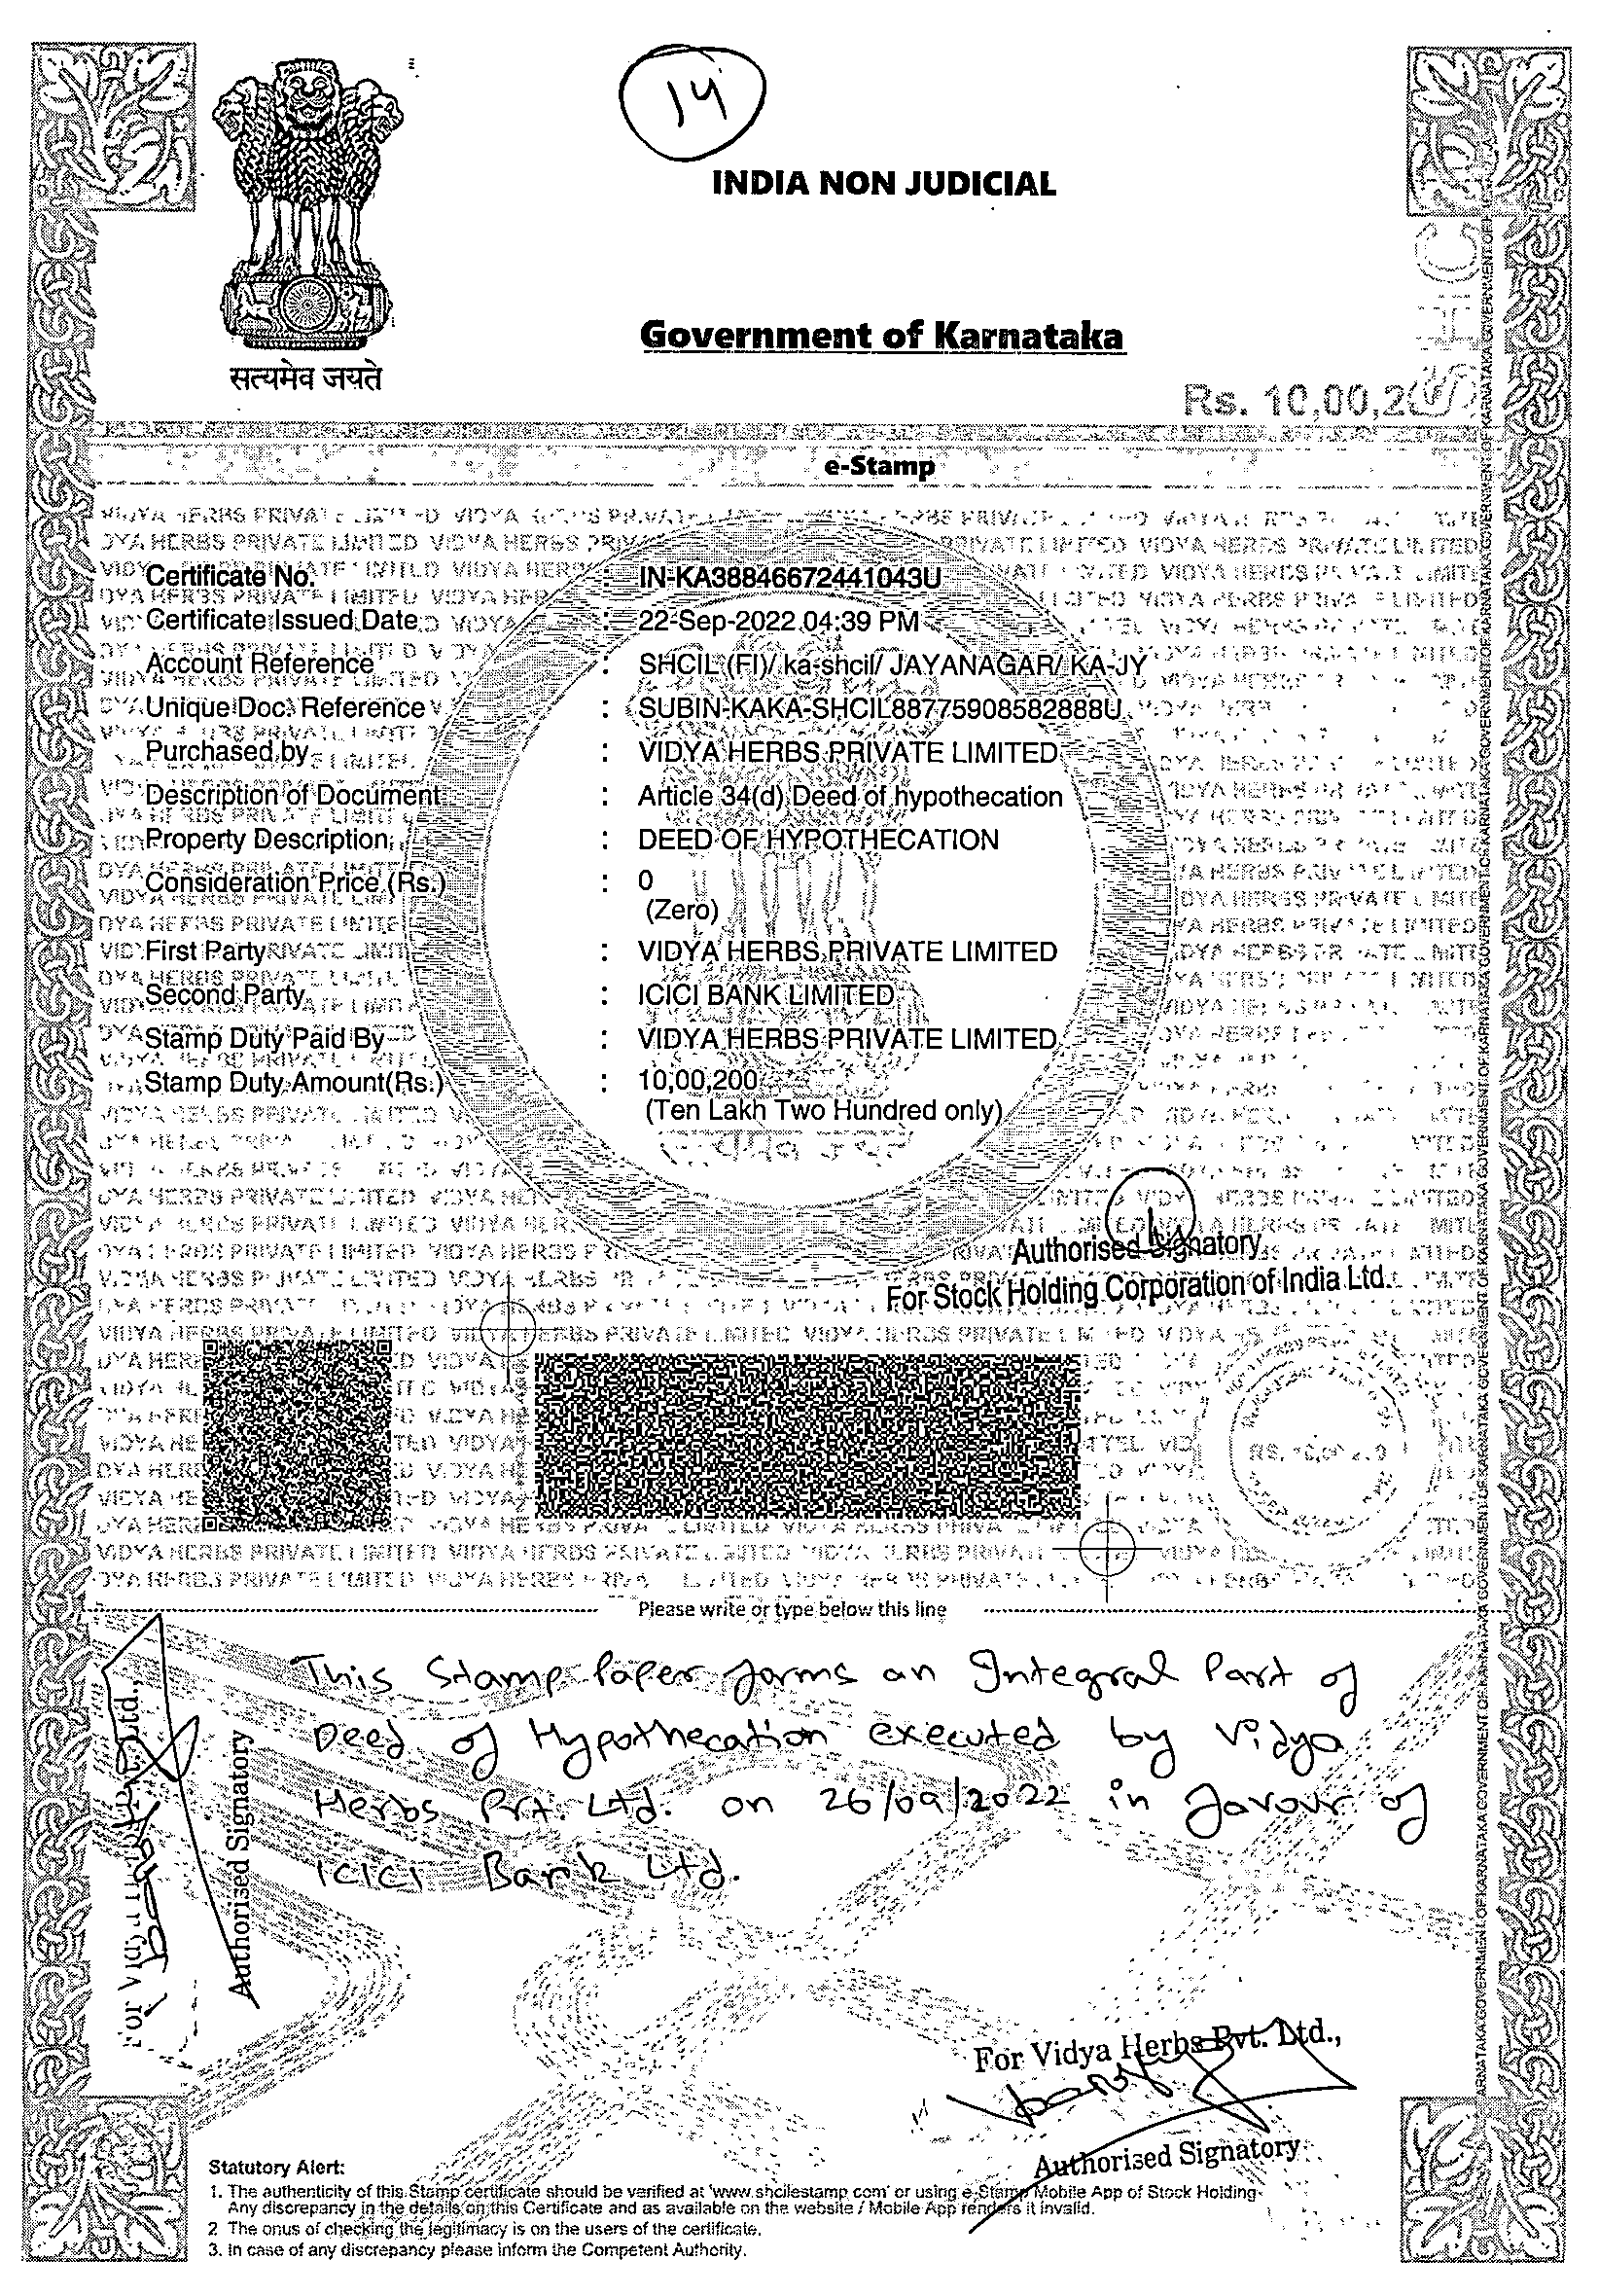 14
INDIA NON JUDICIAL
सत्यमेव जयते
Government of Karnataka
Rs. 10,00,2
e-Stamp
Certificate No. : IN-KA38846672441043U
Certificate Issued Date : 22-Sep-2022 04:39 PM
Account Reference : SHCIL (FI)/ ka-shcil/ JAYANAGAR/ KA-JY
Unique Doc. Reference : SUBIN-KAKA-SHCIL88775908582888U
Purchased by : VIDYA HERBS PRIVATE LIMITED
Description of Document : Article 34(d) Deed of hypothecation
Property Description : DEED OF HYPOTHECATION
Consideration Price (Rs.) : 0
(Zero)
First Party : VIDYA HERBS PRIVATE LIMITED
Second Party : ICICI BANK LIMITED
Stamp Duty Paid By : VIDYA HERBS PRIVATE LIMITED
Stamp Duty Amount(Rs.) : 10,00,200
(Ten Lakh Two Hundred only)
Authorised Signatory
For Stock Holding Corporation of India Ltd.
Please write or type below this line
This Stamp Paper forms an Integral Part of
Deed of Hypothecation executed by Vidya
Herbs Pvt. Ltd. on 26/09/2022 in favour of
ICICI Bank Ltd.
Authorised Signatory
For Vidya Herbs Pvt. Ltd.,
Authorised Signatory
Statutory Alert:
1. The authenticity of this Stamp certificate should be verified at 'www.shcilestamp.com' or using e-Stamp Mobile App of Stock Holding.
Any discrepancy in the details on this Certificate and as available on the website / Mobile App renders it invalid.
2. The onus of checking the legitimacy is on the users of the certificate.
3. In case of any discrepancy please inform the Competent Authority.